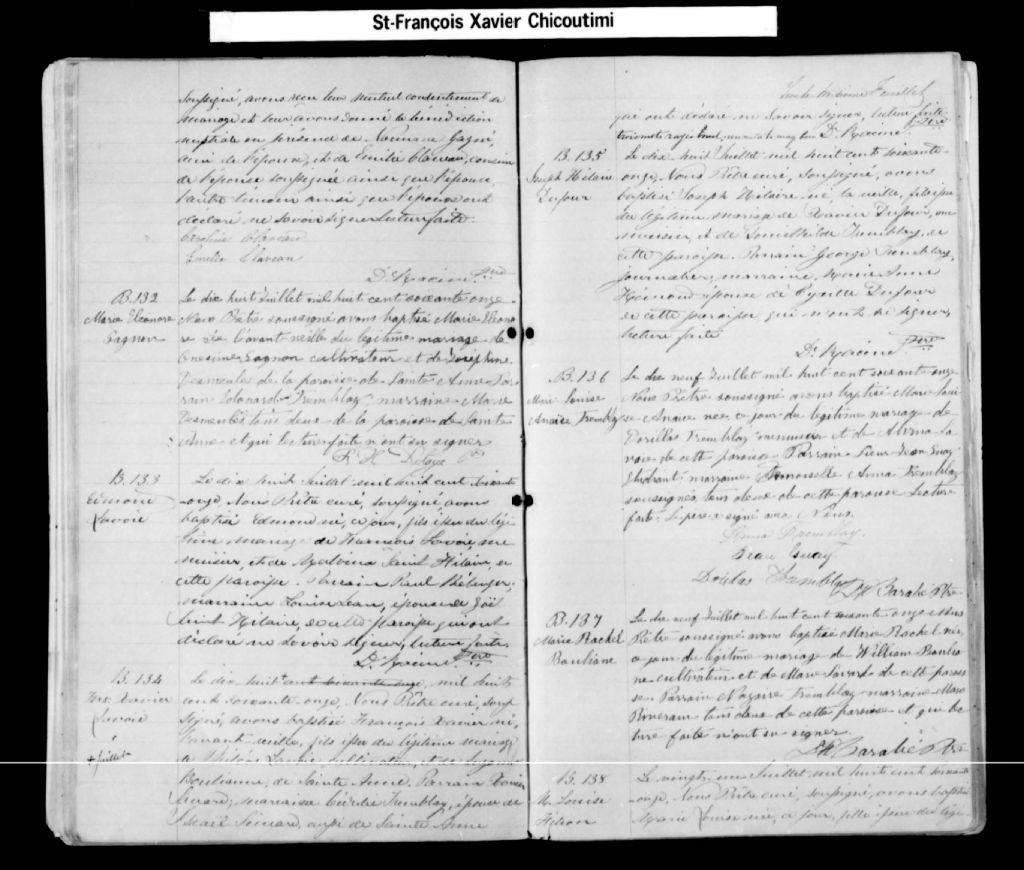 St-François Xavier Chicoutimi
soussigné, avons reçu leur mutuel consentement de
mariage et leur avons donné la bénédiction
nuptiale en présence de Gagné,
ami de l'épouse, et de Emilie Claveau, cousine
de l'épouse soussignée ainsi que l'épouse,
l'autre témoin ainsi que l'époux ont
déclaré ne savoir signer. Lecture faite.
Caroline Claveau
Emilie Claveau
D. Racine Ptre
B. 132
Marie Eleonore
Gagnon
Le dix huit Juillet mil huit cent soixante onze
Nous Prêtre soussigné avons baptisé Marie Eleono
re née l'avant veille du légitime mariage de
Onesime Gagnon cultivateur et de Josephine
Desmeules de la paroisse de Sainte Anne Par
rain Edouard Tremblay marraine Marie
Desmeules tous deux de la paroisse de Sainte
Anne et qui lecture faite n'ont su signer
B. 133
Edmond
Lavoie
Le dix huit Juillet mil huit cent soixante
onze, Nous Prêtre curé, soussigné, avons
baptisé Edmond né, ce jour, fils issu du légi
time mariage de François Lavoie, me
nuisier, et de Saint Hilaire, de
cette paroisse. Parrain Paul Bélanger,
marraine Louise Jean, épouse de Joël
Saint Hilaire, de cette paroisse qui ont
déclaré ne savoir signer, lecture faite.
D. Racine Ptre
B. 134
Frs. Xavier
Lavoie
Le dix huit cent soixante onze, mil huit
cent soixante onze, Nous Prêtre curé, sous
signé, avons baptisé François Xavier né,
l'avant veille, fils issu du légitime mariage
+ Juillet
de Lavoie, cultivateur, et de
Boulianne, de Sainte Anne. Parrain Xavier
Simard; marraine Tremblay, épouse de
Simard, aussi de Sainte Anne
Feuillet
qui ont déclaré ne savoir signer, lecture faite
trois mots rayés nuls, D. Racine Ptre
B. 135
Joseph Hilaire
Dufour
Le dix huit Juillet mil huit cent soixante
onze, Nous Prêtre curé, soussigné, avons
baptisé Joseph Hilaire né, la veille, fils issu
du légitime mariage de Xavier Dufour, me
nuisier, et de Tremblay, de
cette paroisse. Parrain George Tremblay,
journalier; marraine, Marie Anne
épouse de Dufour
de cette paroisse qui n'ont su signer,
lecture faite
D. Racine Ptre
B. 136
Marie Louise
Anaïse Tremblay
Le dix neuf Juillet mil huit cent soixante onze
Nous Prêtre soussigné avons baptisé Marie Loui
se Anaïse née ce jour du légitime mariage de
Dorilas Tremblay menuisier et de Alvina La
voie de cette paroisse Parrain Sieur Jean Guay
Etudiant; marraine Demoiselle Anna Tremblay
soussignés, tous deux de cette paroisse Lecture
faite. Le pere a signé avec Nous.
Anna Tremblay.
Jean Guay.
Dorilas Tremblay
Barabé Ptre
B. 137
Marie Rachel
Bouliane
Le dix neuf Juillet mil huit cent soixante onze Nous
Prêtre soussigné avons baptisé Marie Rachel née
ce jour du légitime mariage de William Boulia
ne cultivateur et de Marie Savard de cette parois
se. Parrain Nazaire Tremblay marraine Marie
Riverain tous deux de cette paroisse et qui lec
ture faite n'ont su signer.
Barabé Ptre
B. 138
M. Louise
Le vingt un Juillet mil huit cent soixante
onze, Nous Prêtre curé, soussigné, avons baptisé
Marie Louise née, ce jour, fille issue du légi-